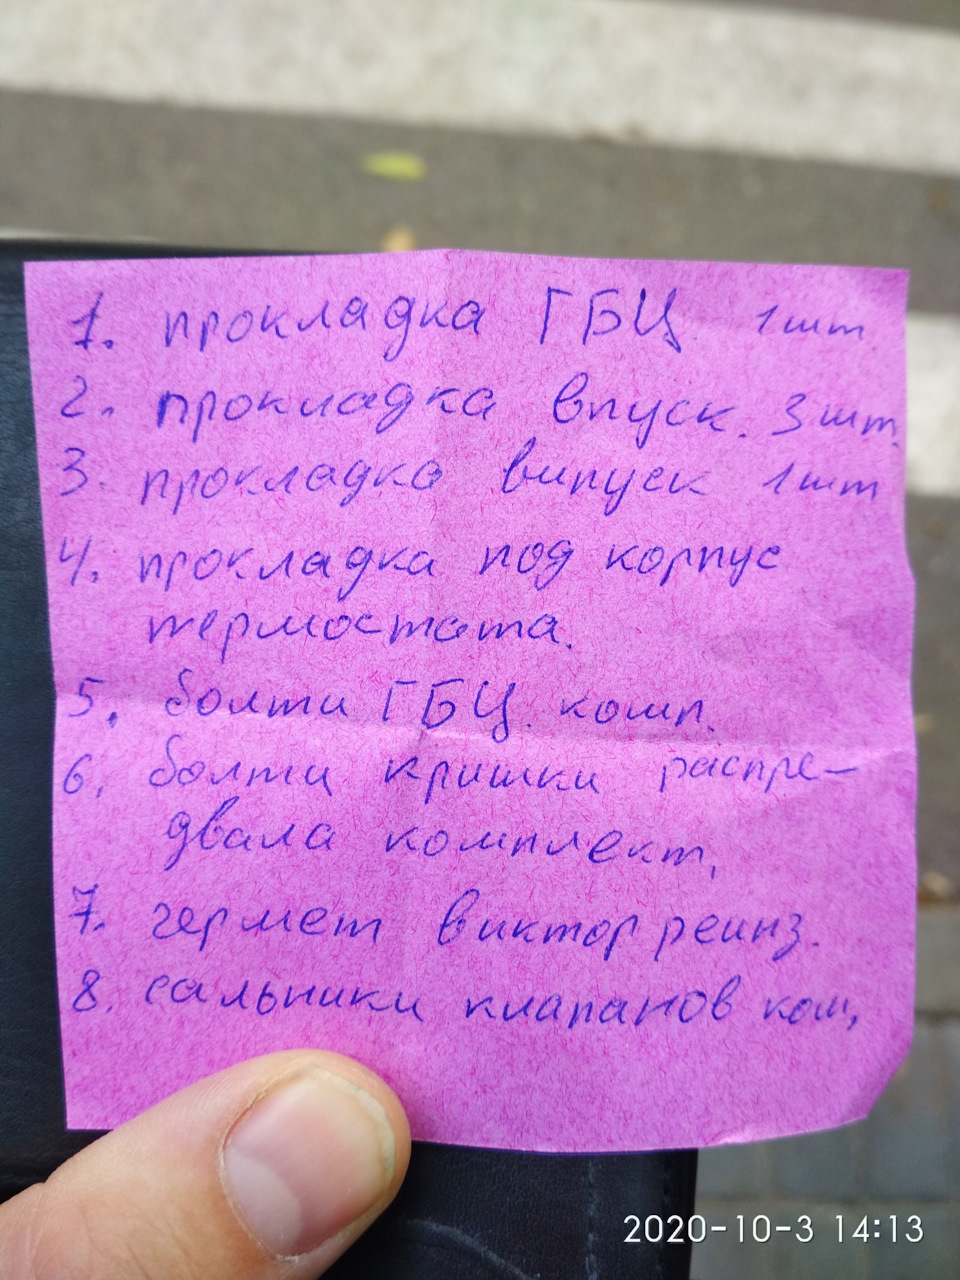 1. прокладка ГБЦ 1шт.
2. прокладка впуск. 3шт.
3. прокладка випуск 1шт
4. прокладка под корпус
термостата.
5. болти ГБЦ. комп.
6. болти кришки распре-
двала комплект,
7. гермет виктор реинз.
8. сальники клапанов ком,
2020-10-3 14:13